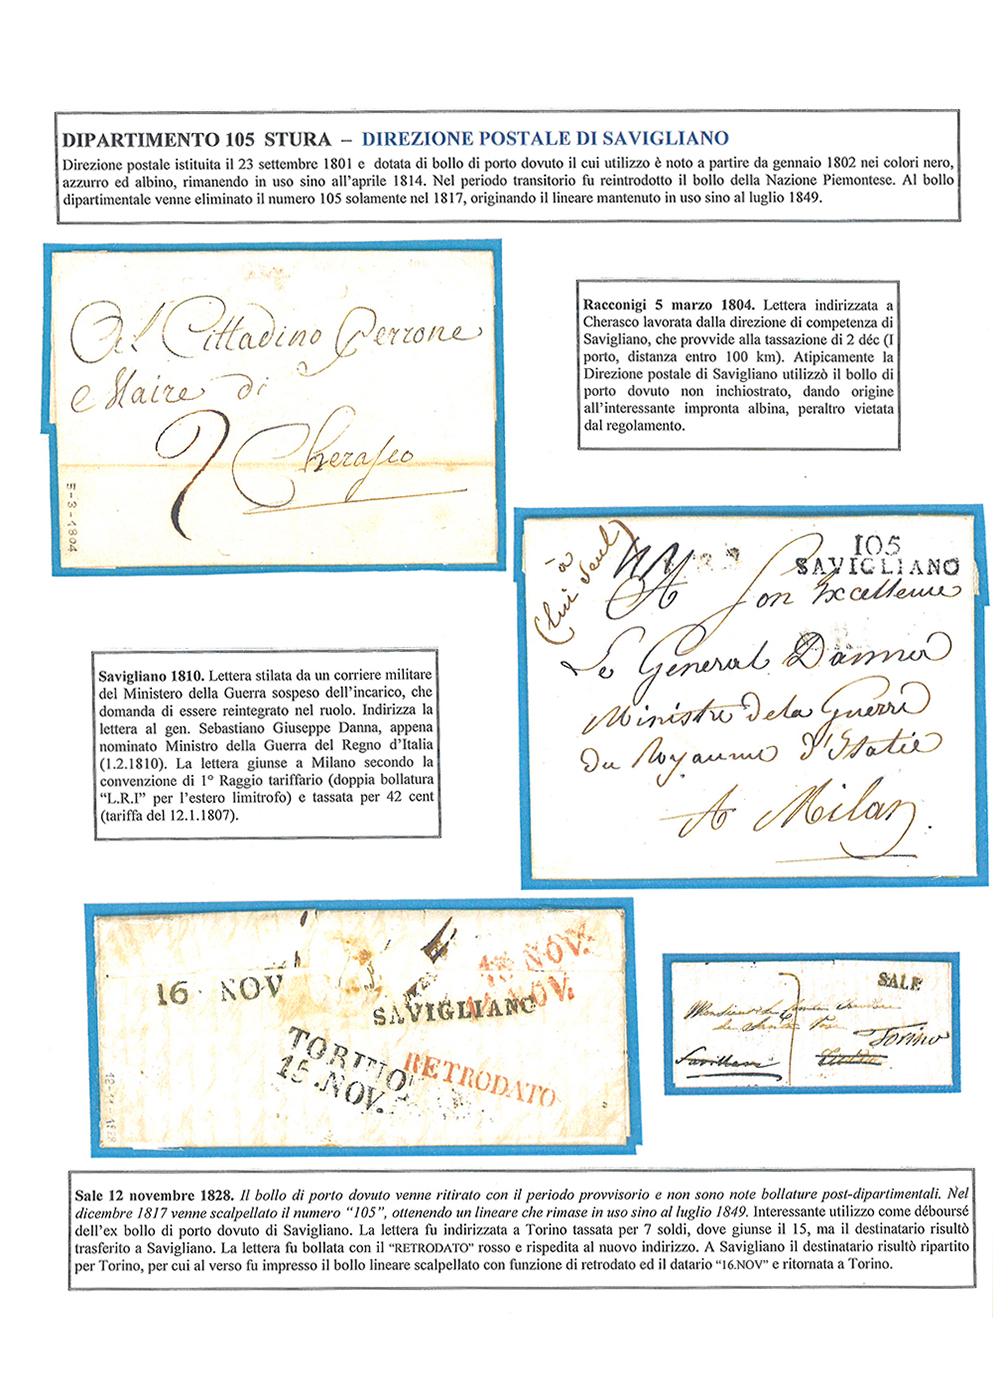 DIPARTIMENTO 105 STURA – DIREZIONE POSTALE DI SAVIGLIANO
Direzione postale istituita il 23 settembre 1801 e dotata di bollo di porto dovuto il cui utilizzo è noto a partire da gennaio 1802 nei colori nero,
azzurro ed albino, rimanendo in uso sino all'aprile 1814. Nel periodo transitorio fu reintrodotto il bollo della Nazione Piemontese. Al bollo
dipartimentale venne eliminato il numero 105 solamente nel 1817, originando il lineare mantenuto in uso sino al luglio 1849.
Al Cittadino Perrone
Maire di
2 Cherasco
5-3-1804
Racconigi 5 marzo 1804. Lettera indirizzata a
Cherasco lavorata dalla direzione di competenza di
Savigliano, che provvide alla tassazione di 2 déc (I
porto, distanza entro 100 km). Atipicamente la
Direzione postale di Savigliano utilizzò il bollo di
porto dovuto non inchiostrato, dando origine
all'interessante impronta albina, peraltro vietata
dal regolamento.
(à
lui seul)
105
SAVIGLIANO
A Son Excellence
Le General Danna
Ministre de la Guerre
du Royaume d'Italie
A Milan.
Savigliano 1810. Lettera stilata da un corriere militare
del Ministero della Guerra sospeso dell'incarico, che
domanda di essere reintegrato nel ruolo. Indirizza la
lettera al gen. Sebastiano Giuseppe Danna, appena
nominato Ministro della Guerra del Regno d'Italia
(1.2.1810). La lettera giunse a Milano secondo la
convenzione di 1° Raggio tariffario (doppia bollatura
“L.R.I” per l'estero limitrofo) e tassata per 42 cent
(tariffa del 12.1.1807).
16 NOV
SAVIGLIANO
NOV.
NOV.
TORINO
15.NOV.
RETRODATO
SALE
Monsieur
Torino
Sale 12 novembre 1828. Il bollo di porto dovuto venne ritirato con il periodo provvisorio e non sono note bollature post-dipartimentali. Nel
dicembre 1817 venne scalpellato il numero “105”, ottenendo un lineare che rimase in uso sino al luglio 1849. Interessante utilizzo come déboursé
dell'ex bollo di porto dovuto di Savigliano. La lettera fu indirizzata a Torino tassata per 7 soldi, dove giunse il 15, ma il destinatario risultò
trasferito a Savigliano. La lettera fu bollata con il “RETRODATO” rosso e rispedita al nuovo indirizzo. A Savigliano il destinatario risultò ripartito
per Torino, per cui al verso fu impresso il bollo lineare scalpellato con funzione di retrodato ed il datario “16.NOV” e ritornata a Torino.